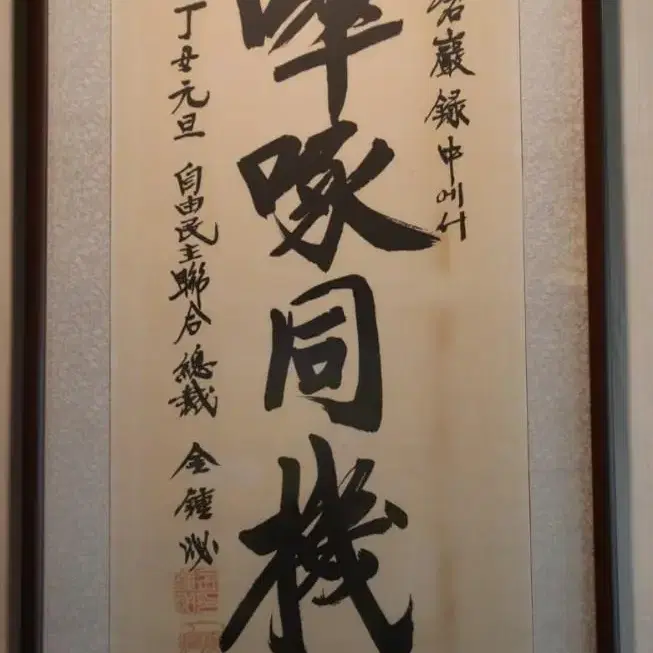 碧巖録中에서
啐啄同機
丁丑元旦 自由民主聯合總裁 金鍾泌